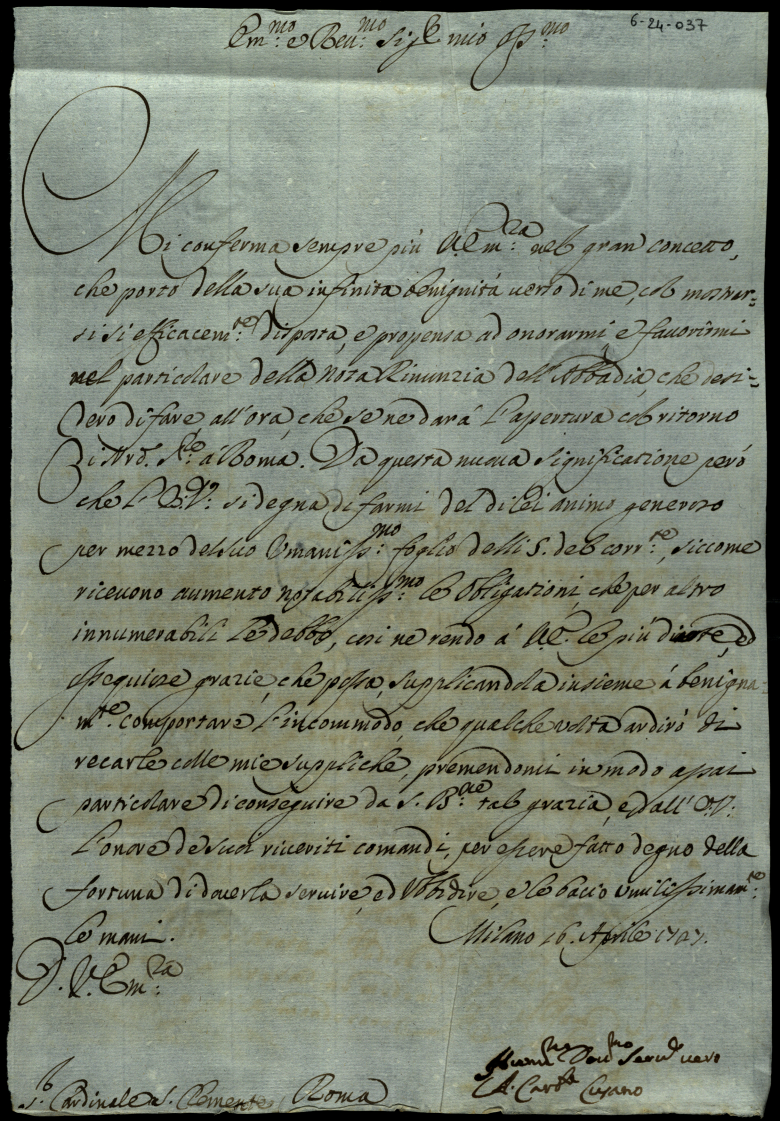 6-24-037
Em:mo e Reu:mo Sig.r mio Oss:mo
Mi conferma sempre più V. Em:za nel gran concetto,
che porto della sua infinita benignità uerso di me, col mostrar-
si si efficacem:te disposta, e propensa ad onorarmi e fauorirmi
nel particolare della nota Rinunzia dell'Abbadia, che desi-
dero di fare, all'ora, che se ne darà l'apertura col ritorno
di Nro. S.re a Roma. Da questa nuoua significatione però
che l'E. V. si degna di farmi del di lei animo generoso
per mezzo del suo Vmaniss:mo foglio delli 5. del corr:te, siccome
riceuono aumento notabiliss:mo le obligationi, che per altro
innumerabili le debbo, così ne rendo á V. E. le più diuote, ed
ossequiose grazie, che possa, supplicandola insieme á benigna-
m:te comportare l'incommodo, che qualche volta ardirò di
recarle colle mie suppliche, premendomi in modo assai
particolare di conseguire da S. B:ne tal grazia, e dall'E. V.
l'onore de suoi riueriti comandi, per essere fatto degno della
fortuna di douerla seruire, ed Vbbidire, e le bacio vmilissimam:te
le mani.
Milano 16. Aprile 1727.
D. V. Em:za
Seru.e uero
A. Card.le Cusano
S. Cardinale S. Clemente Roma